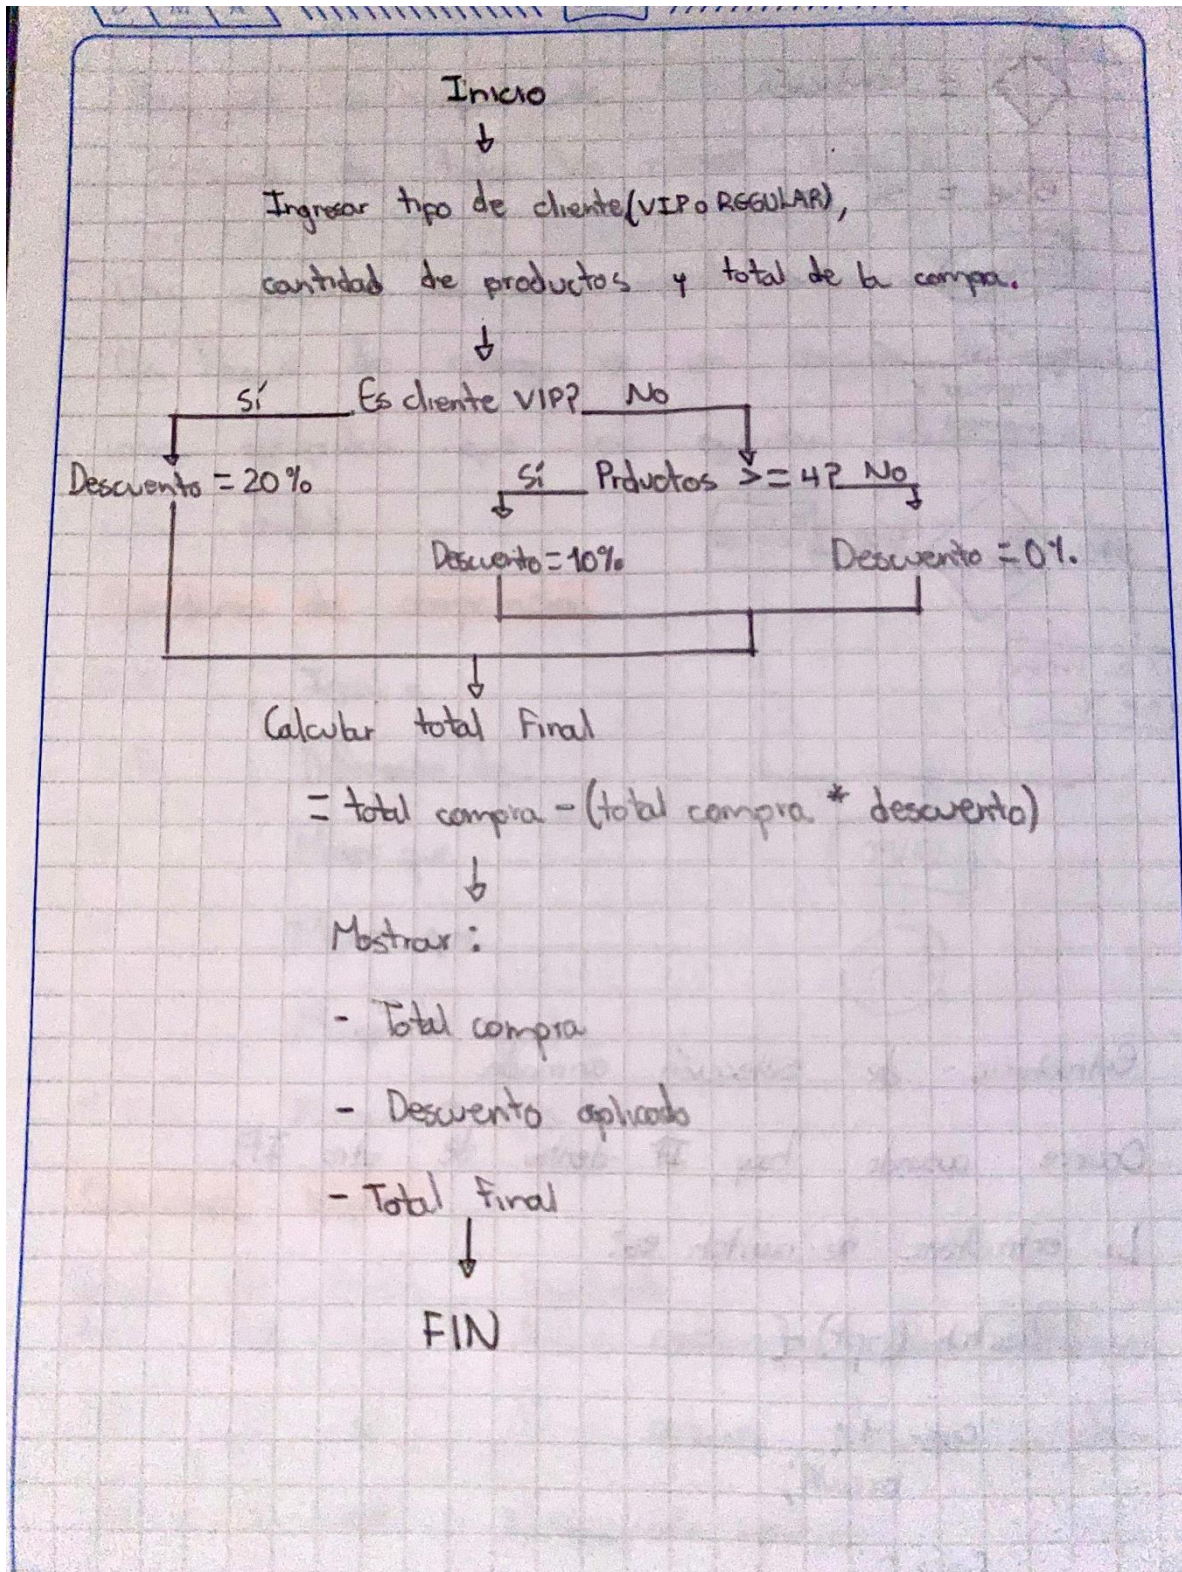 Inicio
Ingresar tipo de cliente(VIP o REGULAR),
cantidad de productos y total de la compra.
Sí Es cliente VIP? No
Descuento = 20% Sí Prductos >= 4? No
Descuento = 10% Descuento = 0%
Calcular total Final
= total compra - (total compra * descuento)
Mostrar :
- Total compra
- Descuento aplicado
- Total Final
FIN